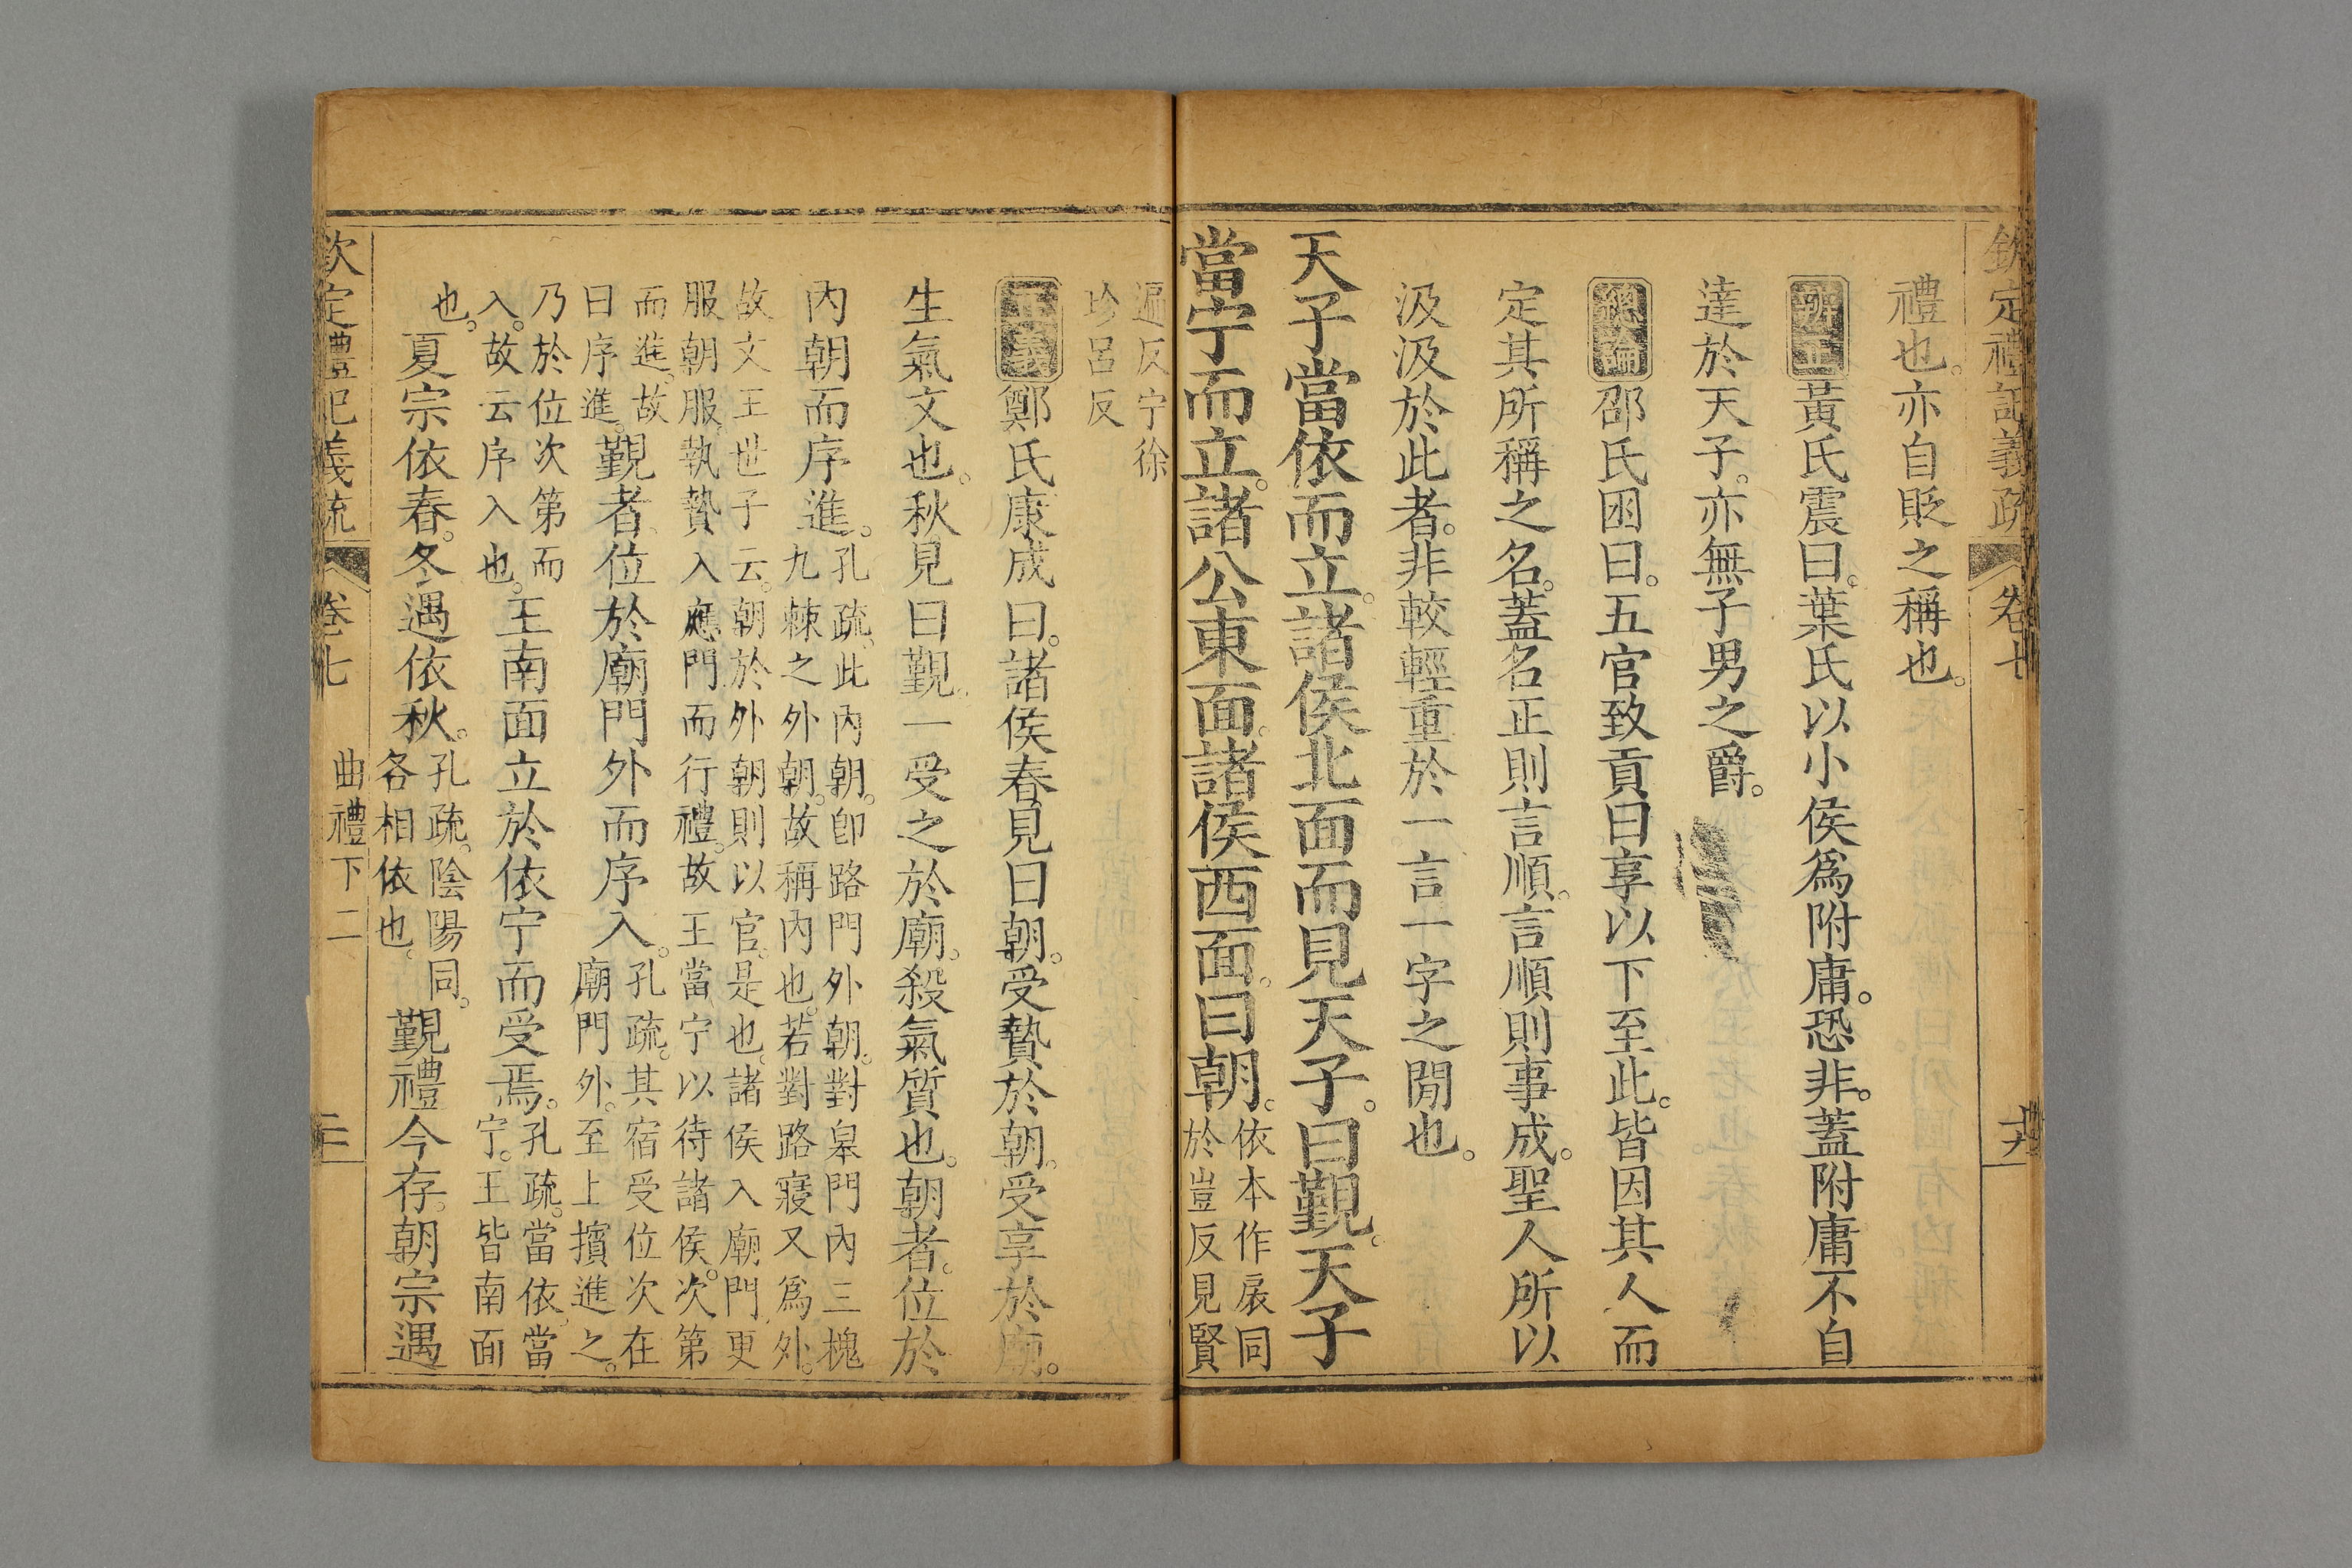 欽定禮記義疏 卷七
禮也。亦自貶之稱也。
辨正黃氏震曰。葉氏以小侯為附庸。恐非。蓋附庸不自
達於天子。亦無子男之爵。
總論邵氏囦曰。五官致貢曰享以下至此。皆因其人而
定其所稱之名。蓋名正則言順。言順則事成。聖人所以
汲汲於此者。非較輕重於一言一字之閒也。
天子當依而立。諸侯北面而見天子。曰覲。天子
當宁而立。諸公東面。諸侯西面。曰朝。依本作扆同
於豈反見賢
遍反宁徐
珍呂反
正義鄭氏康成曰。諸侯春見曰朝。受摯於朝。受享於廟。
生氣文也。秋見曰覲。一受之於廟。殺氣質也。朝者。位於
內朝而序進。孔疏。此內朝。卽路門外朝。對皋門內三槐
九棘之外朝。故稱內也。若對路寢又爲外。
故文王世子云。朝於外朝則以官。是也。諸侯入廟門更
服朝服。執贄入應門而行禮。故王當宁以待諸侯。次第
而進。故
曰序進。覲者位於廟門外而序入。孔疏。其宿受位次在
廟門外。至上擯進之。
乃於位次第而
入。故云序入也。王南面立於依宁而受焉。孔疏。當依當
宁。王皆南面
也。夏宗依春。冬遇依秋。孔疏。陰陽同。
各相依也。覲禮今存。朝宗遇
欽定禮記義疏 卷七 曲禮下二